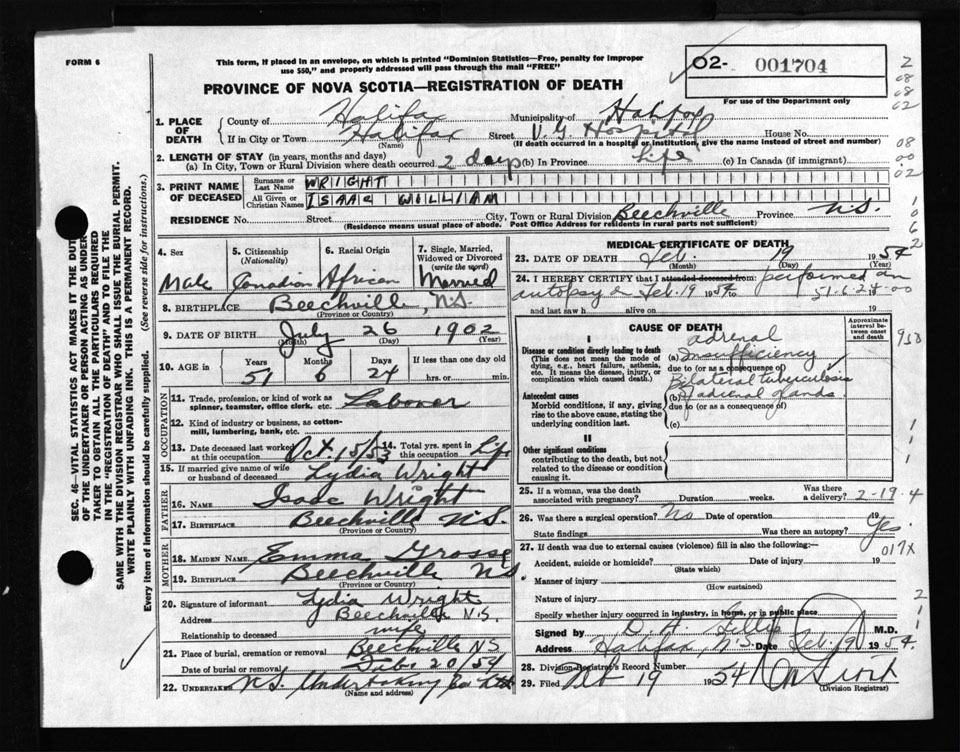 FORM 6
This form, if placed in an envelope, on which is printed "Dominion Statistics—Free, penalty for improper
use $50," and properly addressed will pass through the mail "FREE"
O2- 001704
For use of the Department only
PROVINCE OF NOVA SCOTIA—REGISTRATION OF DEATH
1. PLACE OF DEATH
County of Halifax Municipality of Halifax
If in City or Town Halifax Street V. G. Hospital House No.
(Name) (If death occurred in a hospital or institution, give the name instead of street and number)
2. LENGTH OF STAY (in years, months and days)
(a) In City, Town or Rural Division where death occurred 2 days (b) In Province Life (c) In Canada (if immigrant)
3. PRINT NAME OF DECEASED
Surname or Last Name WRIGHT
All Given or Christian Names ISAAC WILLIAM
RESIDENCE No. Street City, Town or Rural Division Beechville Province N.S.
(Residence means usual place of abode. Post Office Address for residents in rural parts not sufficient)
4. Sex Male
5. Citizenship (Nationality) Canadian
6. Racial Origin African
7. Single, Married, Widowed or Divorced (write the word) Married
8. BIRTHPLACE Beechville, N.S.
(Province or Country)
9. DATE OF BIRTH July 26 1902
(Month) (Day) (Year)
10. AGE in Years 51 Months 6 Days 24 If less than one day old
hrs. or min.
OCCUPATION
11. Trade, profession, or kind of work as spinner, teamster, office clerk, etc. Laborer
12. Kind of industry or business, as cotton-mill, lumbering, bank, etc.
13. Date deceased last worked at this occupation Oct 15/53 14. Total yrs. spent in this occupation Life
15. If married give name of wife or husband of deceased Lydia Wright
FATHER
16. NAME Isaac Wright
17. BIRTHPLACE Beechville N.S.
(Province or Country)
MOTHER
18. MAIDEN NAME Emma Grosse
19. BIRTHPLACE Beechville N.S.
(Province or Country)
20. Signature of informant Lydia Wright
Address Beechville N.S.
Relationship to deceased wife
21. Place of burial, cremation or removal Beechville NS
Date of burial or removal Feb 20/54
22. UNDERTAKER N.S. Undertaking Co Ltd
(Name and address)
MEDICAL CERTIFICATE OF DEATH
23. DATE OF DEATH Feb. 19 1954
(Month) (Day) (Year)
24. I HEREBY CERTIFY that I attended deceased from: performed an
autopsy on Feb. 19 1954 to 51-6-24-00 19
and last saw h alive on 19
CAUSE OF DEATH
Approximate interval between onset and death
I
Disease or condition directly leading to death
(This does not mean the mode of dying, e.g., heart failure, asthenia, etc. It means the disease, injury, or complication which caused death.)
(a) adrenal Insufficiency
due to (or as a consequence of)
Antecedent causes
Morbid conditions, if any, giving rise to the above cause, stating the underlying condition last.
(b) Bilateral tuberculosis of adrenal glands
due to (or as a consequence of)
(c)
II
Other significant conditions
contributing to the death, but not related to the disease or condition causing it.
25. If a woman, was the death associated with pregnancy? Duration weeks. Was there a delivery? 2-19-4
26. Was there a surgical operation? No Date of operation 19
State findings Was there an autopsy? Yes
27. If death was due to external causes (violence) fill in also the following:— 017x
Accident, suicide or homicide? Date of injury 19
(State which)
Manner of injury
(How sustained)
Nature of injury
Specify whether injury occurred in industry, in home, or in public place
Signed by M.D.
Address Halifax, N.S. Date Feb. 19 1954.
28. Division Registrar's Record Number
29. Filed Feb 19 1954
(Division Registrar)
SEC. 46—VITAL STATISTICS ACT MAKES IT THE DUTY
OF THE UNDERTAKER OR PERSON ACTING AS UNDERTAKER
TO OBTAIN ALL THE PARTICULARS REQUIRED
IN THE "REGISTRATION OF DEATH" AND TO FILE THE
SAME WITH THE DIVISION REGISTRAR WHO SHALL ISSUE THE BURIAL PERMIT.
WRITE PLAINLY WITH UNFADING INK. THIS IS A PERMANENT RECORD.
Every item of information should be carefully supplied. (See reverse side for instructions.)